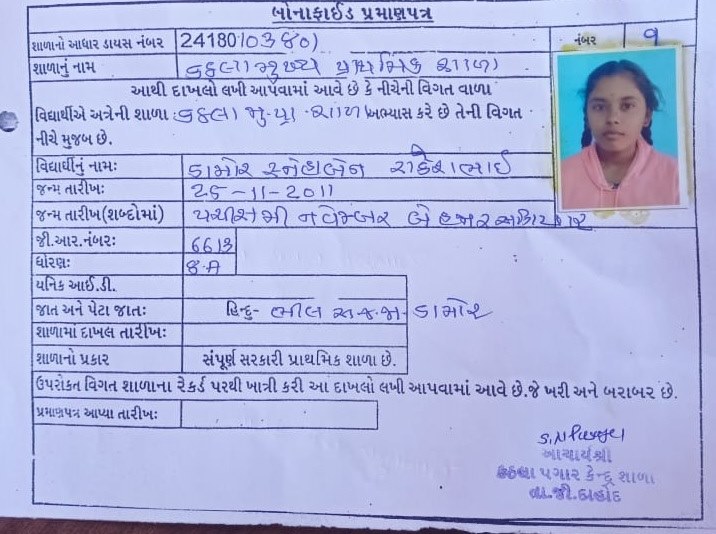 બોનાફાઈડ પ્રમાણપત્ર
શાળાનો આધાર ડાયસ નંબર 24180103801 નંબર 9
શાળાનું નામ કઠલા મુખ્ય પ્રાથમિક શાળા
આથી દાખલો લખી આપવામાં આવે છે કે નીચેની વિગત વાળા
વિદ્યાર્થીએ અત્રેની શાળા કઠલા મુ.પ્રા. શાળા અભ્યાસ કરે છે તેની વિગત
નીચે મુજબ છે.
વિદ્યાર્થીનું નામઃ ડામોર સ્નેહાબેન રાકેશભાઈ
જન્મ તારીખઃ 25-11-2011
જન્મ તારીખ(શબ્દોમાં) પચીસમી નવેમ્બર બે હજાર અગિયાર
જી.આર.નંબરઃ 6613
ધોરણઃ 8-A
યનિક આઈ.ડી.
જાત અને પેટા જાતઃ હિન્દુ- ભીલ અ.જ.જા- ડામોર
શાળામાં દાખલ તારીખઃ
શાળાનો પ્રકાર સંપૂર્ણ સરકારી પ્રાથમિક શાળા છે.
ઉપરોક્ત વિગત શાળાના રેકર્ડ પરથી ખાત્રી કરી આ દાખલો લખી આપવામાં આવે છે.જે ખરી અને બરાબર છે.
પ્રમાણપત્ર આપ્યા તારીખઃ
આચાર્યશ્રી
કઠલા પગાર કેન્દ્ર શાળા
તા.જી.દાહોદ